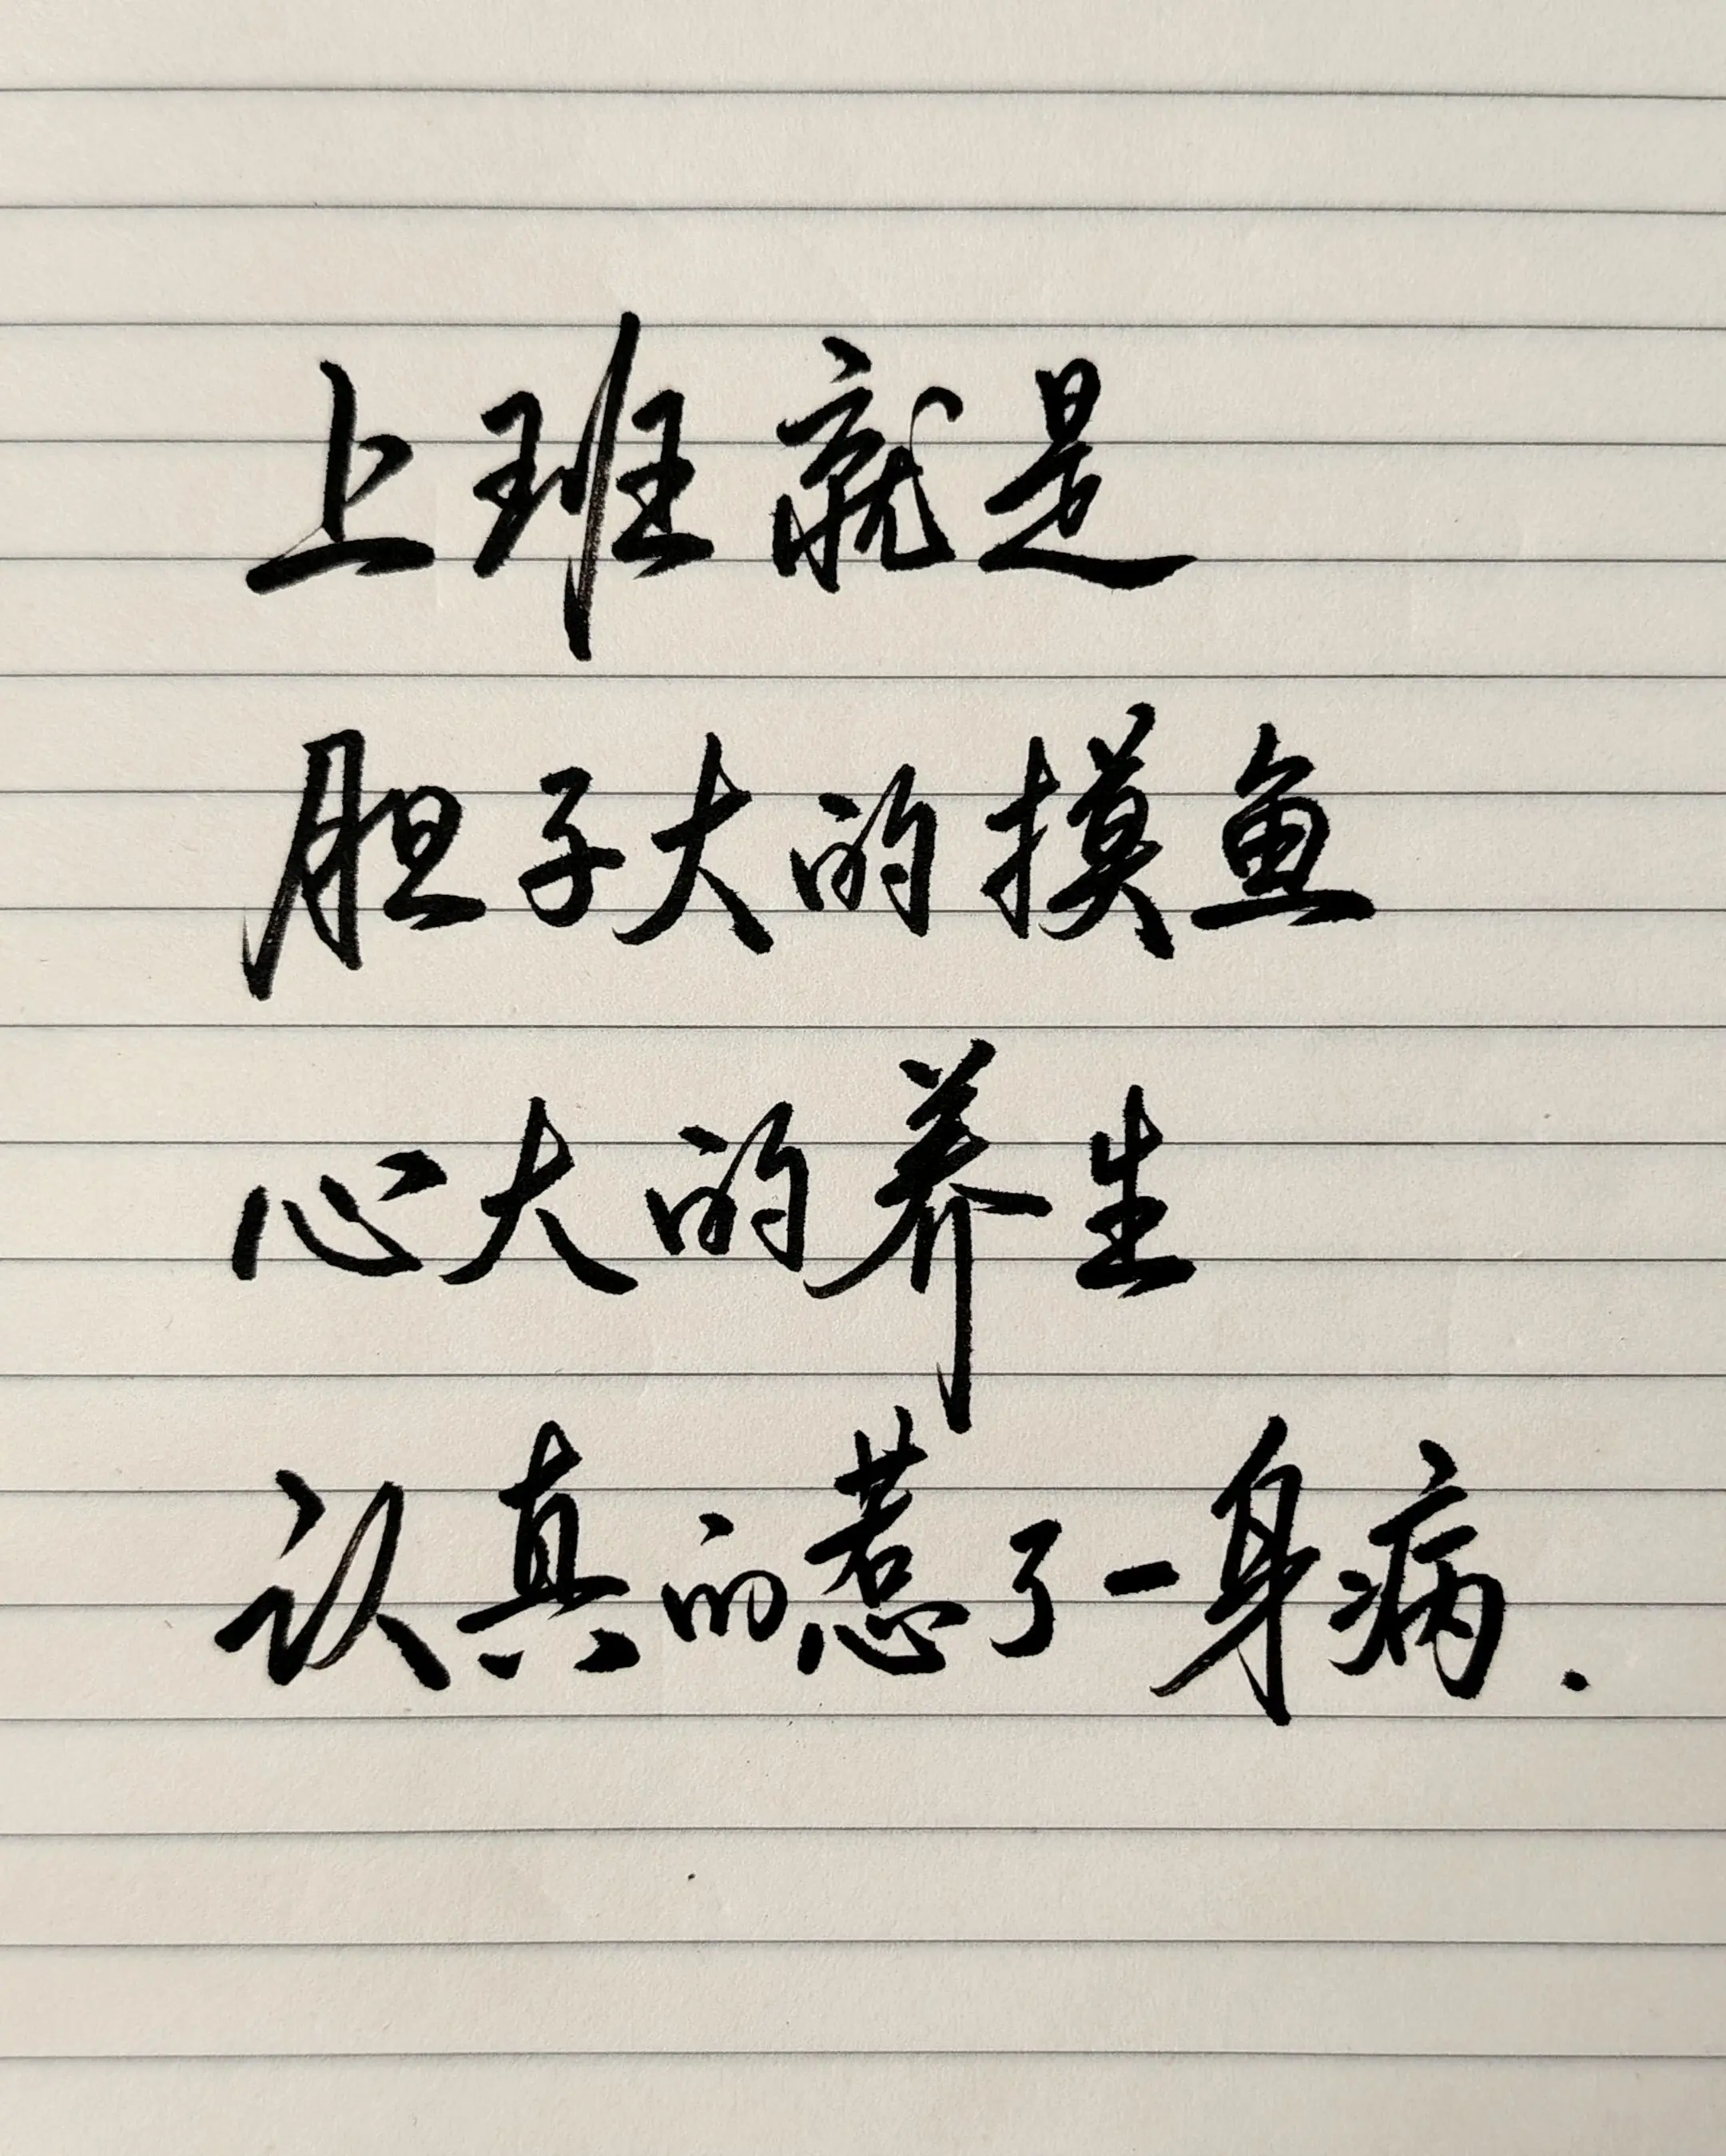 上班就是
胆子大的摸鱼
心大的养生
认真的惹了一身病.